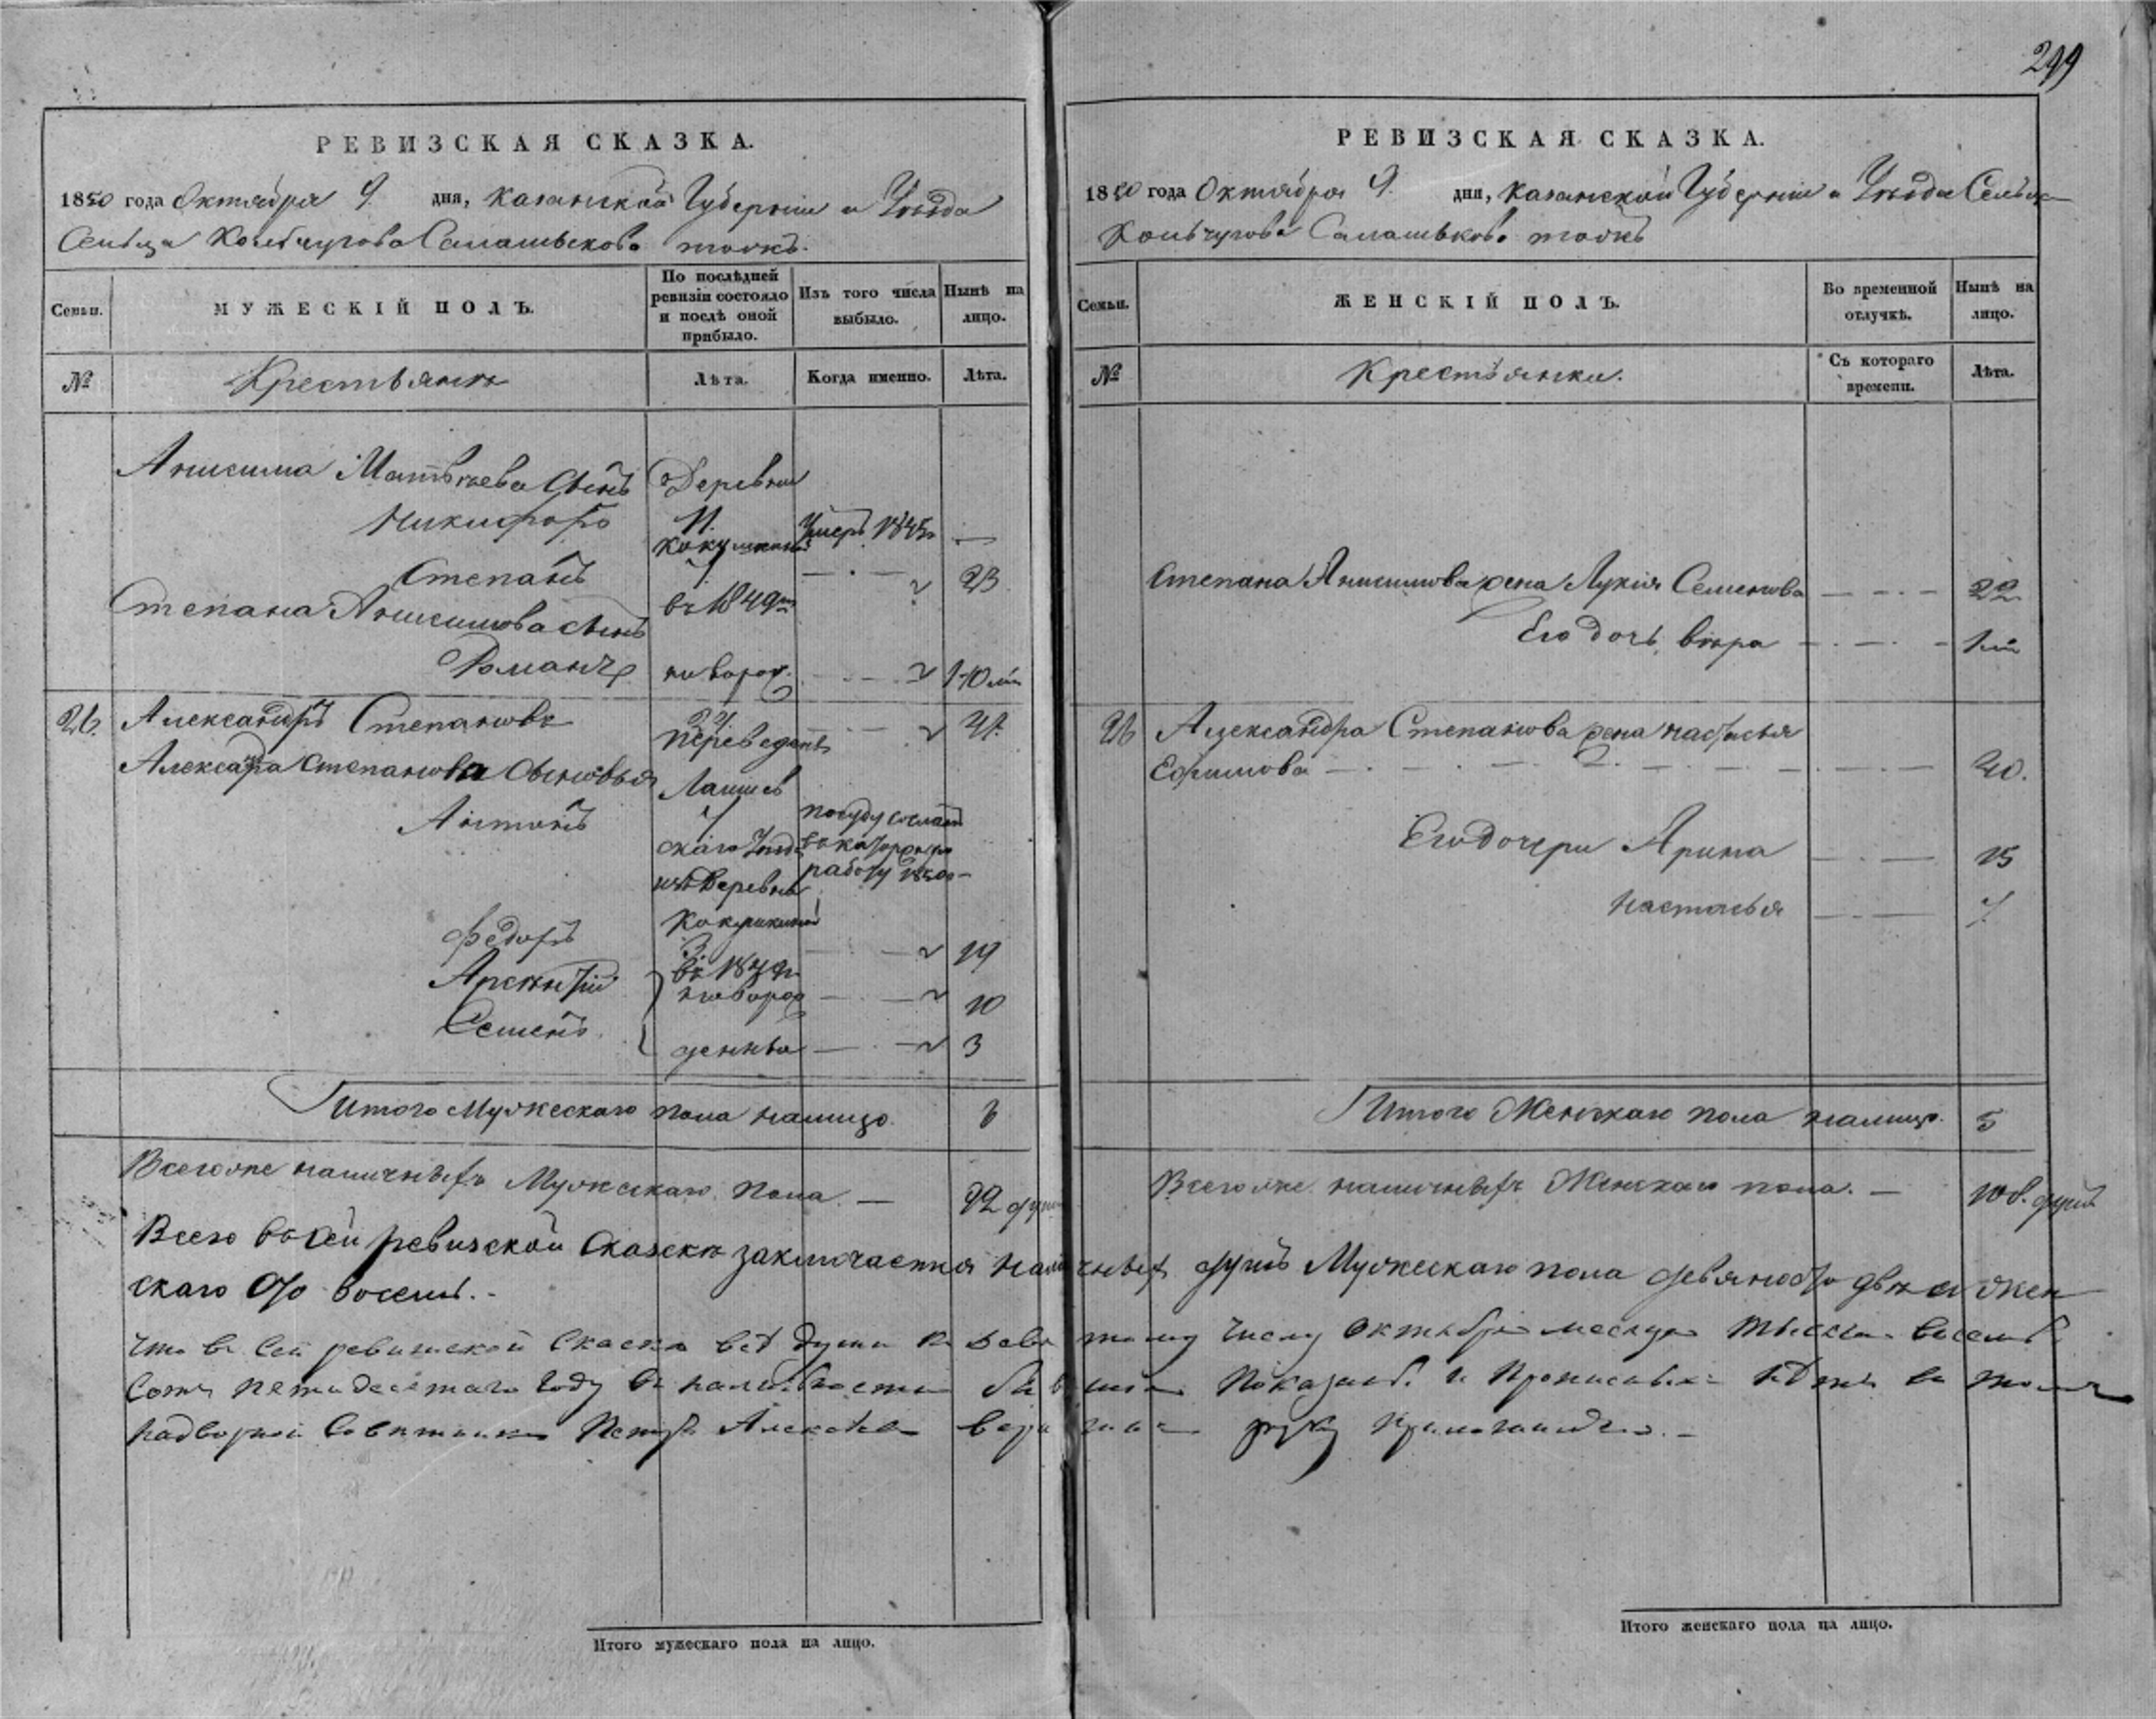 299
РЕВИЗСКАЯ СКАЗКА.
1850 года Октября 9. дня, Казанской Губернии и Уѣзда
Сельца Кольчугова
Семьи.
МУЖЕСКІЙ ПОЛЪ.
По послѣдней ревизіи состояло и послѣ оной прибыло.
Изъ того числа выбыло.
Нынѣ на лицо.
№
Крестьяне
Лѣта.
Когда именно.
Лѣта.
Анисима Матвѣева Сынъ Деревни
Никифоръ 11. Умеръ 1845 —
Степанъ 23
Степана Анисимова сынъ въ 1849
Романъ новорож.
26. Александръ Степановъ переведенъ 41.
Александра Степанова Сыновья Лаишев
Антонъ по суду сосланъ
скаго Уѣзда въ каторжную
изъ Деревни работу
Федоръ 3. 19
Арсентій новорож 10
Семенъ денныя 3
Итого Мужескаго пола налицо. 6
Всегоже наличныхъ Мужескаго пола — 92 души
РЕВИЗСКАЯ СКАЗКА.
1850 года Октября 9. дня, Казанской Губерніи и Уѣзда Сельца
Кольчугова
Семьи.
ЖЕНСКІЙ ПОЛЪ.
Во временной отлучкѣ.
Нынѣ на лицо.
№
Крестьянки.
Съ котораго времени.
Лѣта.
Степана Анисимова жена Лукія Семенова 22
Его дочь Вѣра
26 Александра Степанова жена Настасья
Ефимова 40.
Его дочери Арина 15
Настасья 7
Итого Женскаго пола налицо. 5
Всегоже наличныхъ Женскаго пола. — 108. душъ
Всего въ сей ревизской Сказкѣ заключается наличныхъ душъ Мужескаго пола девяносто двѣ и жен
скаго сто восемь. -
Что въ Сей ревизской Сказке всѣ души къ девятому числу Октября месяца тысяча восемь
Сотъ петидесятаго году въ наличности
надворной Советникъ Петръ Алексеевъ руку приложилъ. -
Итого мужескаго пола на лицо.
Итого женскаго пола на лицо.